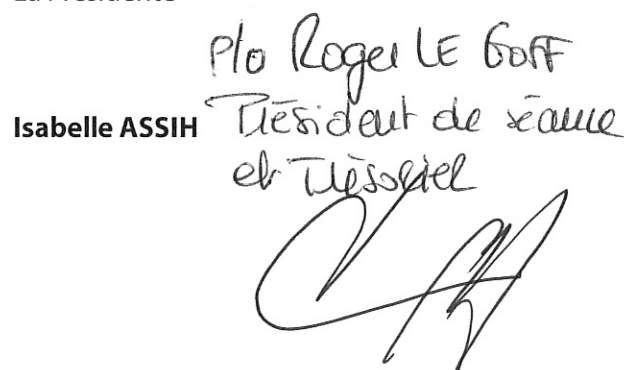 La Présidente
P/o Roger LE GOFF
Isabelle ASSIH Président de séance
et Trésorier